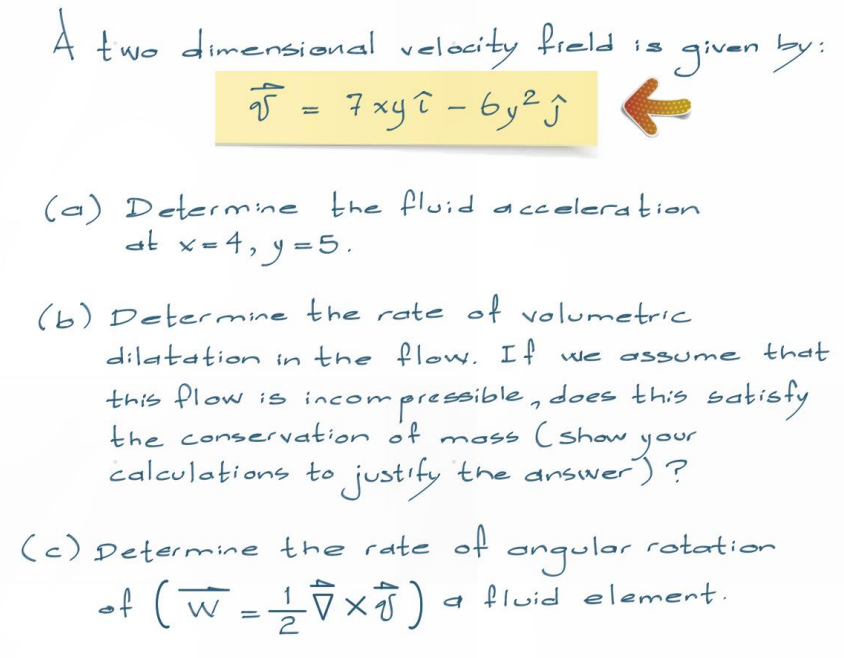 A two dimensional velocity field is given by:
v⃗ = 7xy î − 6y² ĵ
(a) Determine the fluid acceleration
at x=4, y=5.
(b) Determine the rate of volumetric
dilatation in the flow. If we assume that
this flow is incompressible, does this satisfy
the conservation of mass (show your
calculations to justify the answer)?
(c) Determine the rate of angular rotation
of (w⃗ = 1/2 ∇⃗ × v⃗) a fluid element.